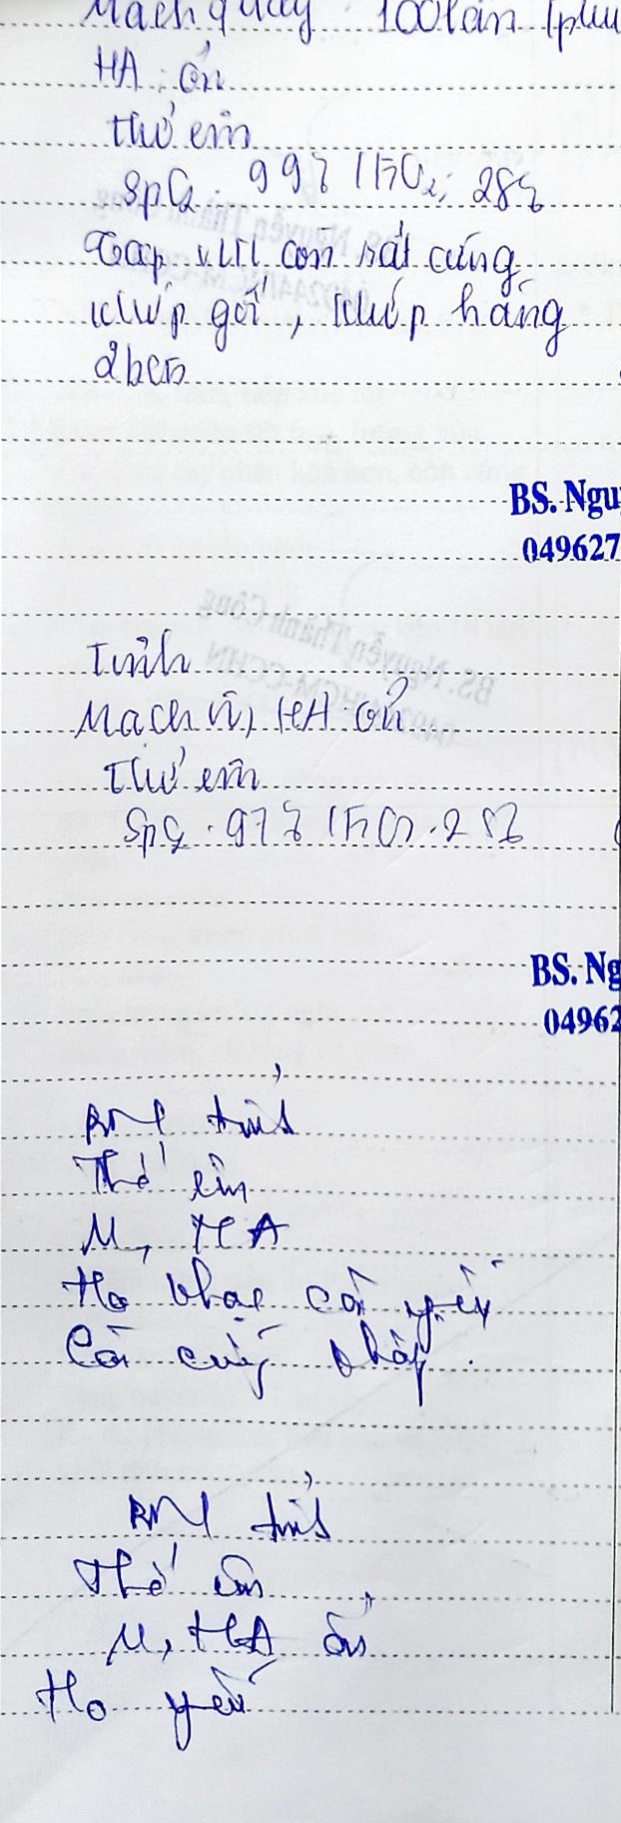 Mạch quay 100 lần /phú
HA ổn
thở êm
SpO2: 99% FiO2: 28%
còn rất cứng
khớp gối, khớp háng
2 bên
BS. Ngu
049627
Tỉnh
Mạch vi, HA ổn
Thở êm
SpO2: 97% FiO2: 25%
BS. Ng
04962
BN tỉnh
Thở êm
M, HA
Ho khạc còn yếu
Còn cứng khớp.
BN tỉnh
Thở êm
M, HA ổn
Ho yếu